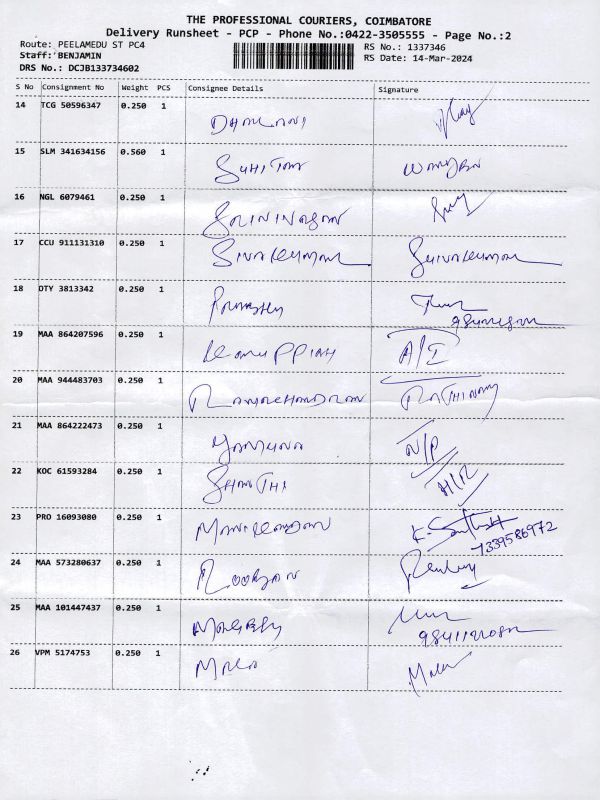 THE PROFESSIONAL COURIERS, COIMBATORE
Delivery Runsheet - PCP - Phone No.:0422-3505555 - Page No.:2
Route: PEELAMEDU ST PC4 RS No.: 1337346
Staff: BENJAMIN RS Date: 14-Mar-2024
DRS No.: DCJB133734602
S No Consignment No Weight PCS Consignee Details Signature
14 TCG 50596347 0.250 1
15 SLM 341634156 0.560 1
16 NGL 6079461 0.250 1
17 CCU 911131310 0.250 1 SIVAKUMAR SHIVAKUMAR
18 OTY 3813342 0.250 1
19 MAA 864207596 0.250 1 KARUPPIAH A/I
20 MAA 944483703 0.250 1 RAMACHANDRAN RATHINAM
21 MAA 864222473 0.250 1 YAMUNA N/P
22 KOC 61593284 0.250 1 SHANTHI H/R
23 PRO 16093080 0.250 1 MANIKANDAN K. Santhosh
7339586972
24 MAA 573280637 0.250 1
25 MAA 101447437 0.250 1
26 VPM 5174753 0.250 1 MALA Mala